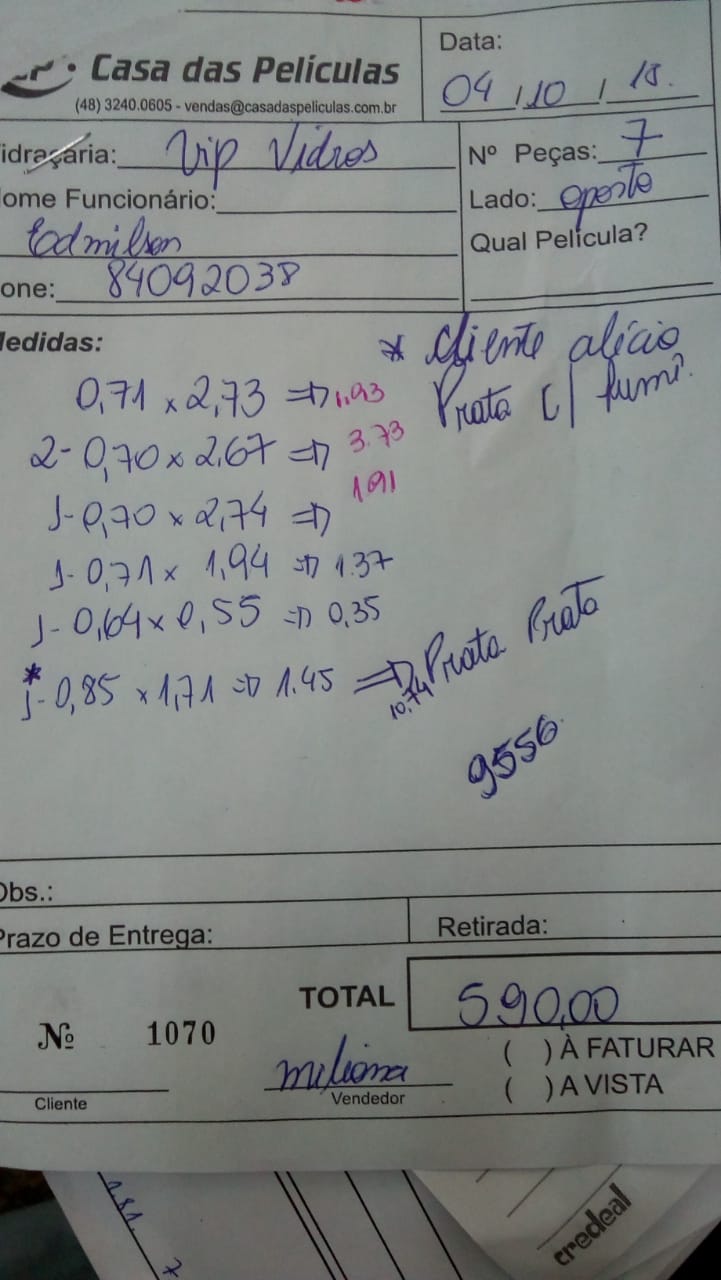 Casa das Películas
(48) 3240.0605 - vendas@casadaspeliculas.com.br
Data:
04/10/18.
idraçaria: Vip Vidros
Nº Peças: 7
ome Funcionário:
Lado: oposto
Edmilson
Qual Película?
one: 84092038
Medidas:
* Cliente alício
Prata c/ fumê.
0,71 x 2,73 => 1.93
2- 0,70 x 2,67 => 3.73
1- 0,70 x 2,74 => 1.91
1- 0,71 x 1,94 => 1.37
1- 0,64 x 0,55 => 0,35
* 1- 0,85 x 1,71 => 1.45 => Prata Prata
10.74
9556.
Obs.:
Prazo de Entrega:
Retirada:
TOTAL 590,00
Nº 1070
( ) À FATURAR
( ) A VISTA
Cliente
Vendedor
1.81
7
credeal